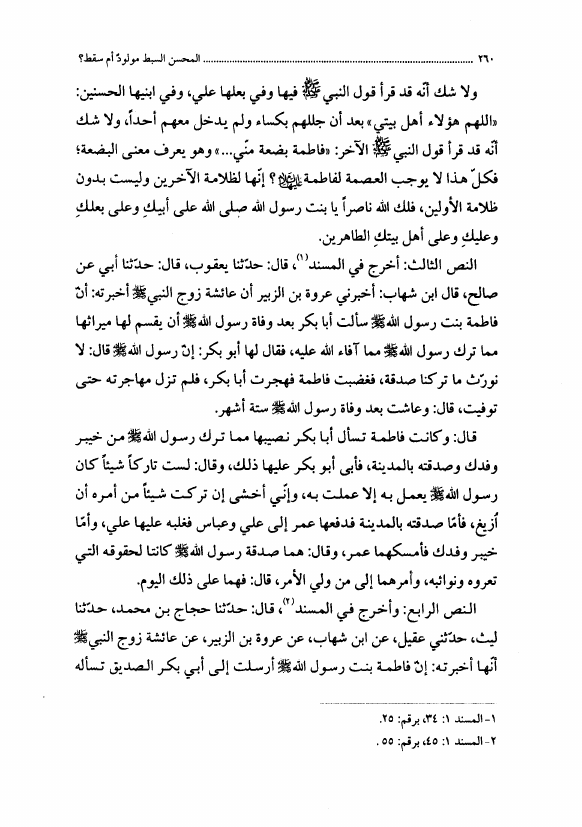 ٢٦٠ ........ المحسن السبط مولودٌ أم سقط؟
ولا شك أنّه قد قرأ قول النبي ﷺ فيها وفي بعلها علي، وفي ابنيها الحسنين:
«اللهم هؤلاء أهل بيتي» بعد أن جللهم بكساء ولم يدخل معهم أحداً، ولا شك
أنّه قد قرأ قول النبي ﷺ الآخر: «فاطمة بضعة منّي...» وهو يعرف معنى البضعة؛
فكلّ هذا لا يوجب العصمة لفاطمة؟ إنّها لظلامة الآخرين وليست بدون
ظلامة الأولين، فلك الله ناصراً يا بنت رسول الله صلى الله على أبيكِ وعلى بعلكِ
وعليكِ وعلى أهل بيتكِ الطاهرين.
النص الثالث: أخرج في المسند(١)، قال: حدّثنا يعقوب، قال: حدّثنا أبي عن
صالح، قال ابن شهاب: أخبرني عروة بن الزبير أن عائشة زوج النبي ﷺ أخبرته: أنّ
فاطمة بنت رسول الله ﷺ سألت أبا بكر بعد وفاة رسول الله ﷺ أن يقسم لها ميراثها
مما ترك رسول الله ﷺ مما آفاء الله عليه، فقال لها أبو بكر: إنّ رسول الله ﷺ قال: لا
نورّث ما تركنا صدقة، فغضبت فاطمة فهجرت أبا بكر، فلم تزل مهاجرته حتى
توفيت، قال: وعاشت بعد وفاة رسول الله ﷺ ستة أشهر.
قال: وكانت فاطمة تسأل أبا بكر نصيبها مما ترك رسول الله ﷺ من خيبر
وفدك وصدقته بالمدينة، فأبى أبو بكر عليها ذلك، وقال: لست تاركاً شيئاً كان
رسول الله ﷺ يعمل به إلا عملت به، وإنّي أخشى إن تركت شيئاً من أمره أن
أزيغ، فأمّا صدقته بالمدينة فدفعها عمر إلى علي وعباس فغلبه عليها علي، وأمّا
خيبر وفدك فأمسكهما عمر، وقال: هما صدقة رسول الله ﷺ كانتا لحقوقه التي
تعروه ونوائبه، وأمرهما إلى من ولي الأمر، قال: فهما على ذلك اليوم.
النص الرابع: وأخرج في المسند(٢)، قال: حدّثنا حجاج بن محمد، حدّثنا
ليث، حدّثني عقيل، عن ابن شهاب، عن عروة بن الزبير، عن عائشة زوج النبي ﷺ
أنّها أخبرته: إنّ فاطمة بنت رسول الله ﷺ أرسلت إلى أبي بكر الصديق تسأله
١-المسند ١: ٣٤، برقم: ٢٥.
٢-المسند ١: ٤٥، برقم: ٥٥ .